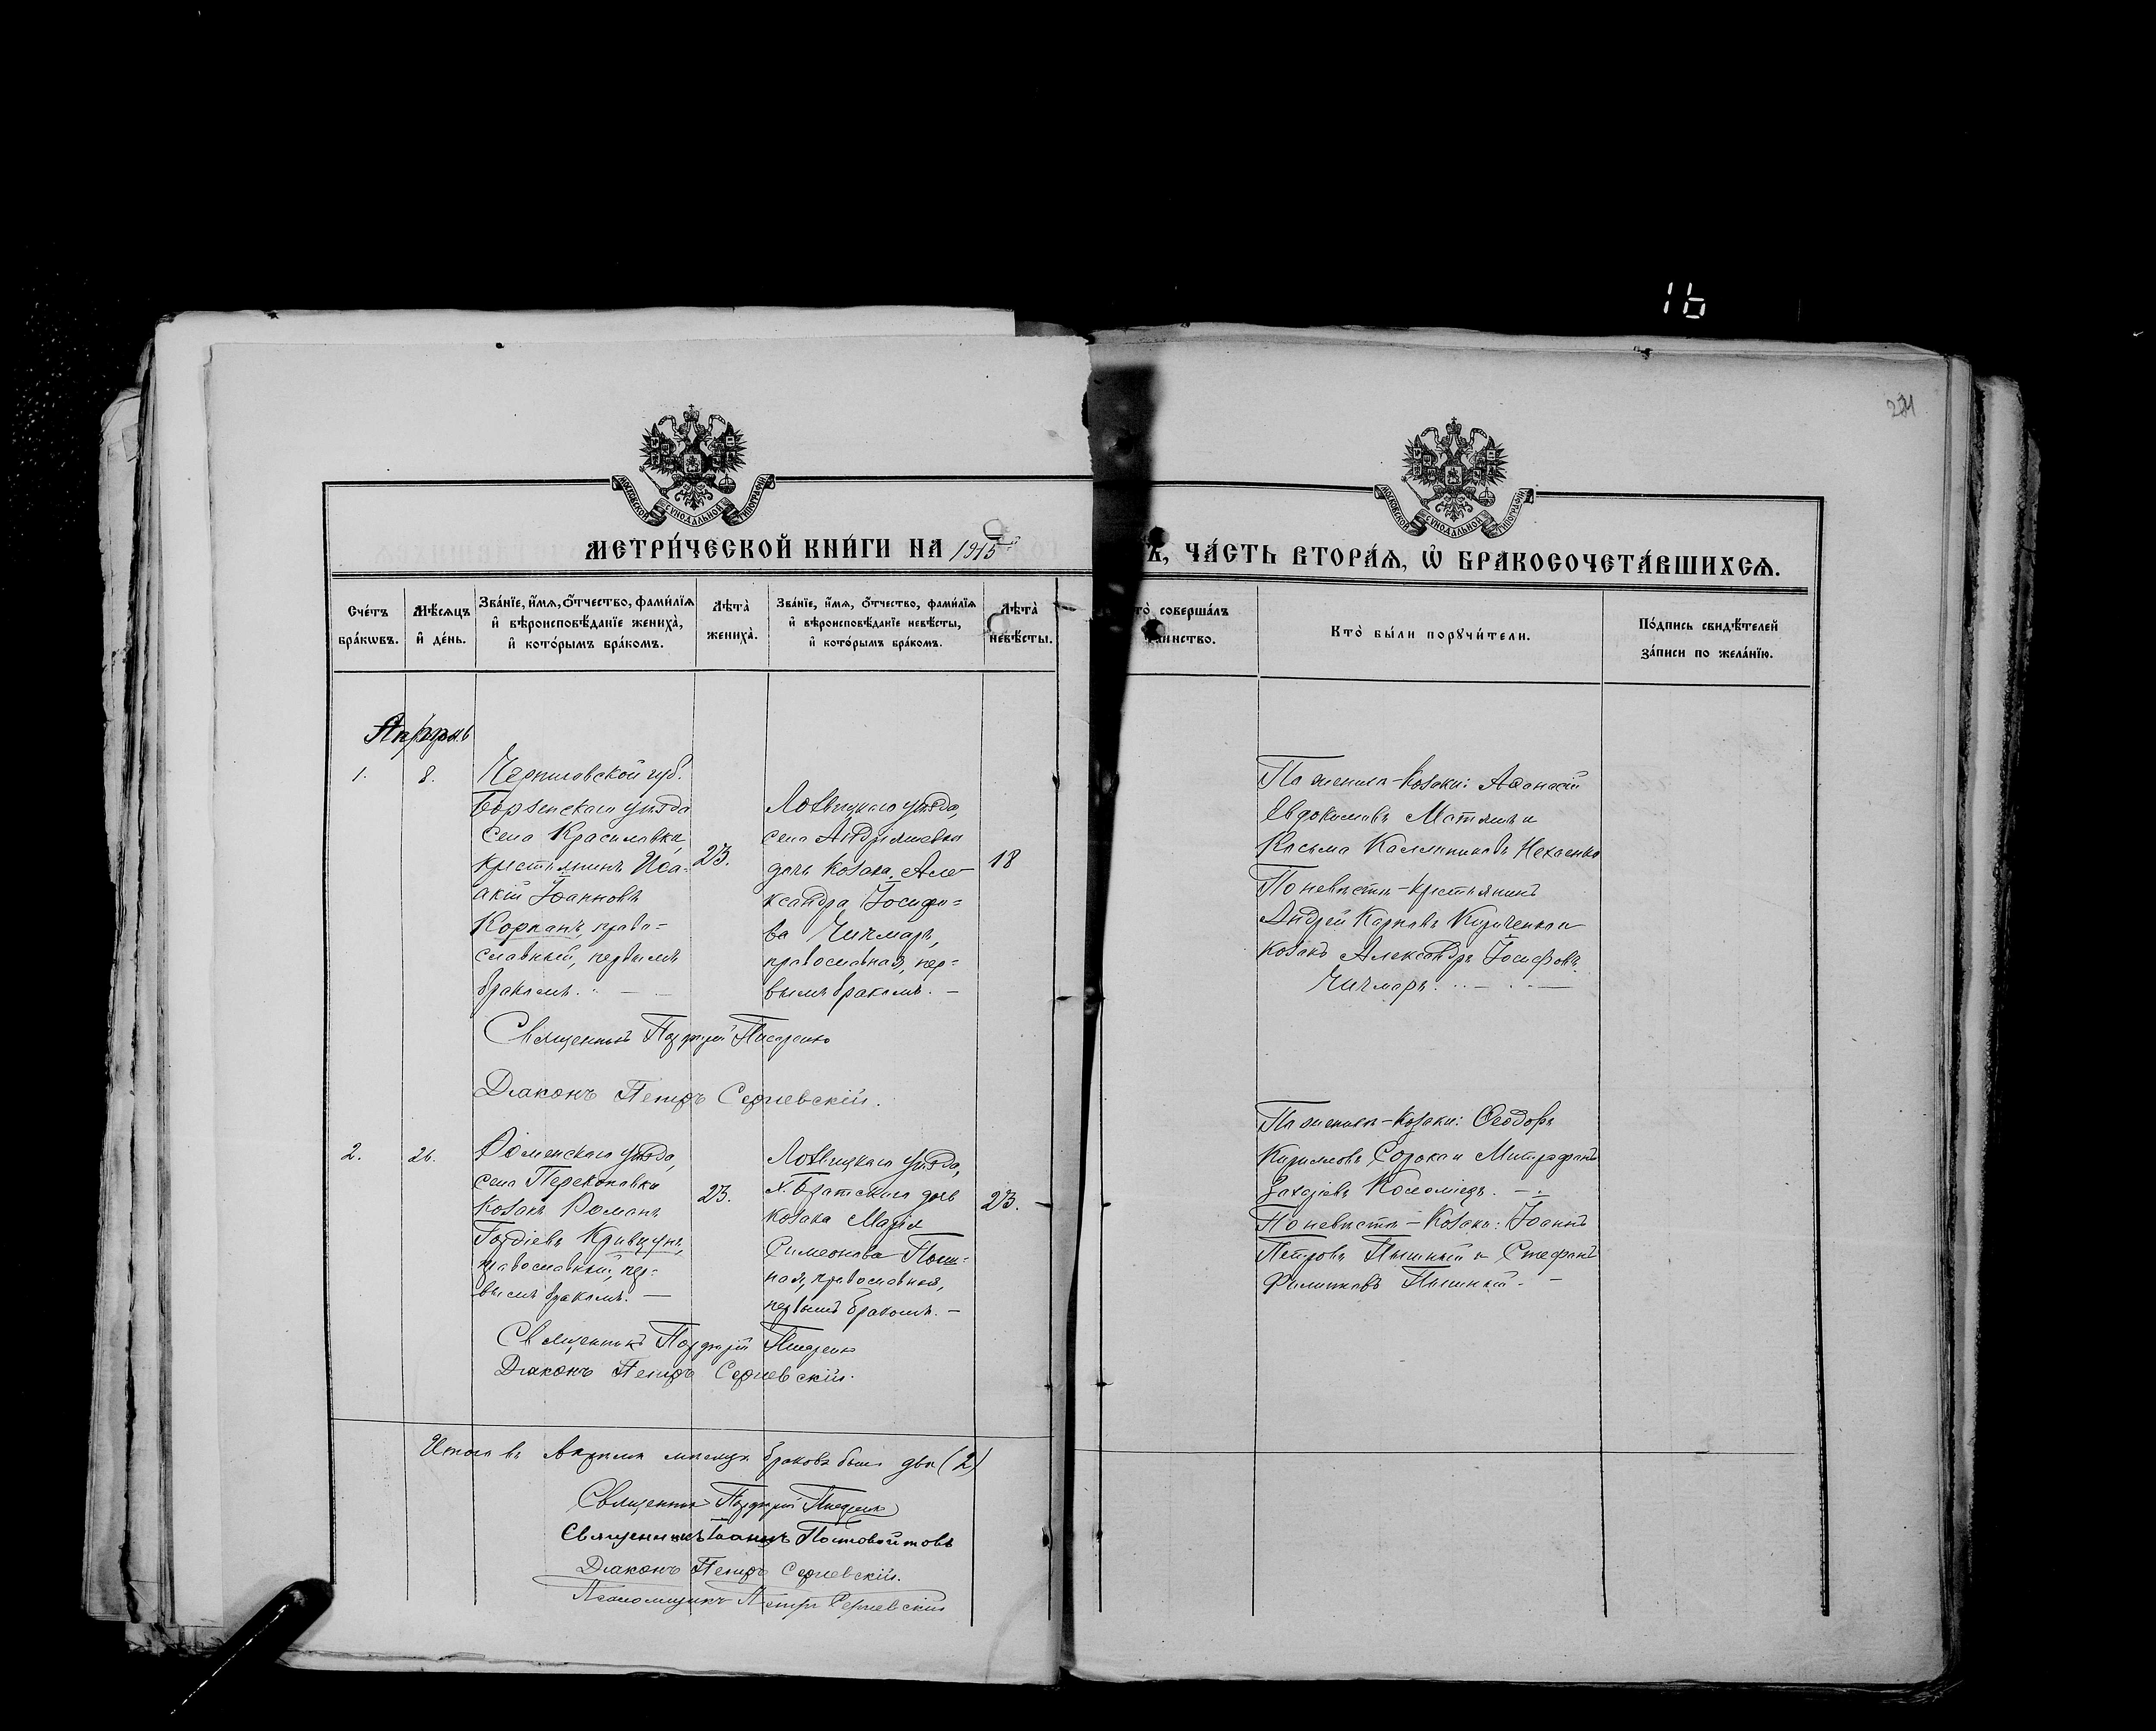 16
271
МОСКОВСКОЙ СѴНОДАЛЬНОЙ ТИПОГРАФІИ
МОСКОВСКОЙ СѴНОДАЛЬНОЙ ТИПОГРАФІИ
МЕТРИ́ЧЕСКОЙ КНИ́ГИ НА 1915
ЧА́СТЬ ВТОРА́Ѧ, Ѽ БРАКОСОЧЕТА́ВШИХСѦ.
Сче́тъ бра́кѡвъ.
Мѣ́сѧцъ и҆ де́нь.
Зва́нїе, и҆́мѧ, ѻ҆́тчество, фами́лїѧ и҆ вѣроисповѣ́данїе жениха̀, и҆ кото́рымъ бра́комъ.
Лѣта̀ жениха̀.
Зва́нїе, и҆́мѧ, ѻ҆́тчество, фами́лїѧ и҆ вѣроисповѣ́данїе невѣ́сты, и҆ кото́рымъ бра́комъ.
Лѣта̀ невѣ́сты.
то̀ соверша́лъ
та́инство.
Кто̀ бы́ли порꙋчи́тели.
По́дпись свидѣ́телей
за́писи по жела́нїю.
Апрѣль
1.
8.
Черниговской губ.
Борзенскаго уѣзда
села Красиловки,
крестьянинъ Иса-
акій Іоанновъ
Корпанъ, право-
славный, первымъ
бракомъ. —
23.
Лохвицкаго уѣзда,
села Андріяшевки
дочь козака, Але-
ксандра Іосифо-
ва Чичмарь,
православная, пер-
вымъ бракомъ. —
18
По женихѣ - козаки: Аѳанасій
Евдокимовъ Матяшъ и
Косьма Каллиниковъ Нехаенко
По невѣстѣ - крестьянинъ
Андрей Карповъ Кириченко и
козакъ Александръ Іосифовъ
Чичмарь. — —
Священникъ Порфирій Писаренко
Діаконъ Петръ Сергіевскій.
2.
26.
Роменскаго уѣзда,
села Перекоповки
козакъ Романъ
Гордіевъ Кривцунъ,
православный, пер-
вымъ бракомъ. —
23.
Лохвицкаго уѣзда,
х. Братскаго дочь
козака Марія
Симеонова Пыш-
ная, православная,
первымъ бракомъ. —
23.
По женихѣ - козаки: Ѳеодоръ
Кирилловъ Сорока и Митрофанъ
Захаріевъ Коломіецъ. —
По невѣстѣ - козаки: Іоаннъ
Петровъ Пышный и Стефанъ
Филиповъ Пышный. —
Священникъ Порфирій Писаренко
Діаконъ Петръ Сергіевскій.
Итого въ Апрѣлѣ мѣсяцѣ браковъ было два (2)
Священникъ Порфирій Писаренко
Священникъ Іоаннъ Постовойтовъ
Діаконъ Петръ Сергіевскій.
Псаломщикъ Петръ Сергіевскій